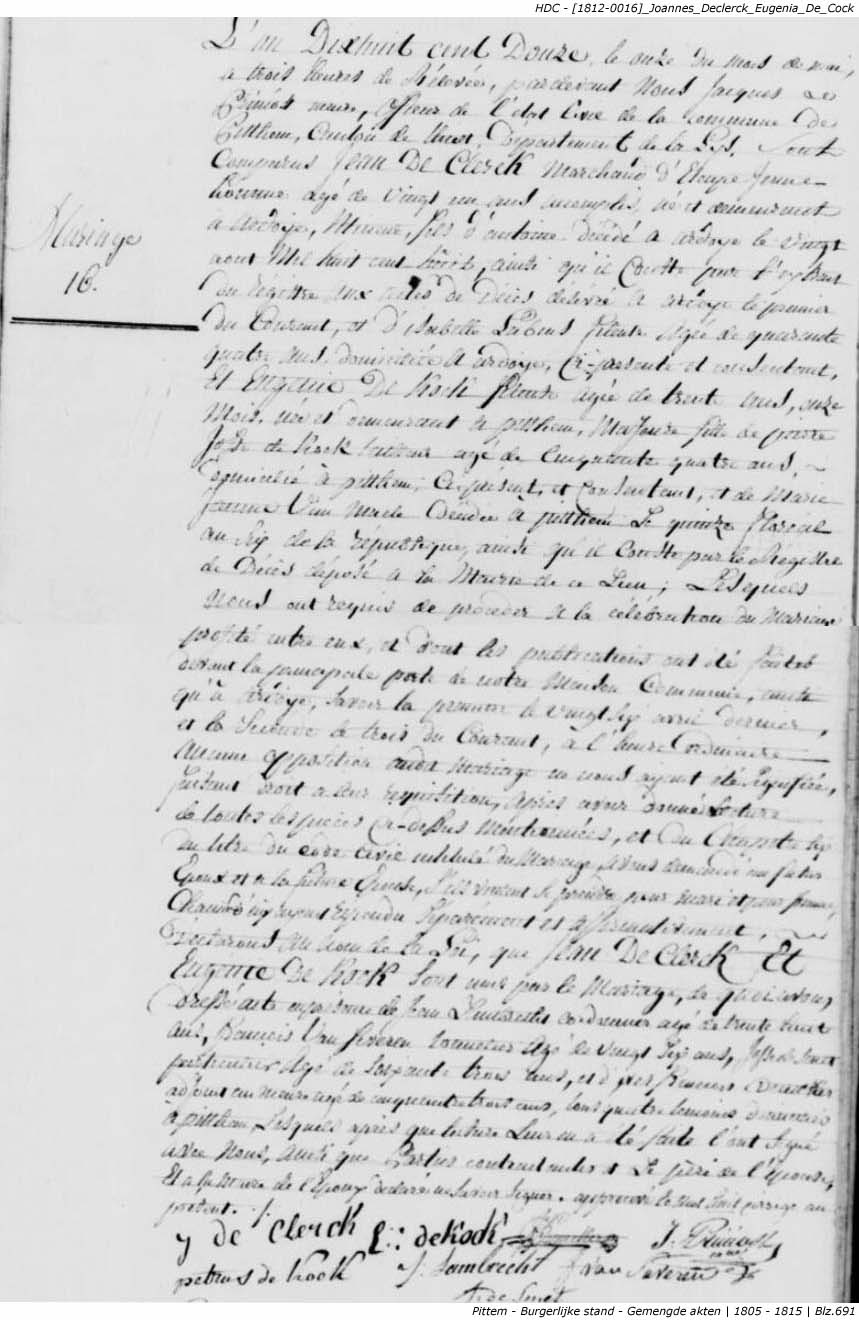 HDC - [1812-0016]_Joannes_Declerck_Eugenia_De_Cock
L'an Dixhuit cent Douze, le onze du mois de mai,
a trois heures de Rélevée, pardevant Nous Jacques
maire, officier de l'etat Civil de la commune De
Pitthem, Canton de Département de la Lys. Sont
Comparus Jean De Clerck Marchand d'Etoupe Jeune
homme agé de vingt un ans accomplis, né et demeurant
a ardoye, Mineur, fils d'antoine décédé a ardoye le vingt
aout Mil huit cent ainsi qu'il Conste par l'extrait
du régistre aux actes de Décès délivré a ardoye le premier
du Courant, et d'isabelle fileuse agée de quarante
quatre ans, domiciliée a ardoye, Ci-presente et consentante,
Et Eugenie De Kock fileuse agée de trente ans, onze
Mois, née et demeurant a pitthem, Majeure fille de pierre
de Kock agé de Cinquante quatre ans,
Domicilié à pitthem, Ci-présent, et Consentant, et de Marie
jeanne Van Décédée à pitthem Le quinze floréal
an Six de la république, ainsi qu'il Conste par le Registre
de Décès déposé a la Mairie de ce Lieu; Lesquels
Nous ont requis de procéder a la célébration du Mariage
projeté entre eux, et dont les publications ont été faites
devant la principale porte de notre Maison Commune, ainsi
qu'à ardoye, Savoir la premiere le vingt Six avril dernier,
et la Seconde le trois du Courant, à l'heure ordinaire
Aucune opposition audit Mariage ne nous ayant été Signifiée,
faisant droit a leur requisition, après avoir donné lecture
de toutes les pièces Ci-dessus mentionnées, et du Chapitre Six
du titre du Code civil intitulé du Mariage, avons demandé au futur
Epoux et a la future Epouse, S'ils veulent se prendre pour mari et pour femme,
Chacun d'eux ayant repondu Séparément et affirmativement,
Declarons au nom de la Loi, que Jean De Clerck Et
Eugenie De Kock Sont unis par le Mariage, de quoi avons
dressé acte en présence de Jean Lambrecht cordonnier agé de trente
ans, francois Van Severen tonnelier agé de vingt Six ans, de Smet
agé de soixante trois ans, et
adjoint au maire agé de cinquante trois ans, tous quatre temoins domiciliés
a pitthem, Lesquels après que lecture Leur en a été faite l'ont Signé
avec Nous, ainsi que Parties contractantes et Le père de l'épouse,
Et a la mere de l'Epoux declaré ne Savoir Signer. approuvé le mot au
présent.
Mariage
16.
y de Clerck E:: de Kock
petrus de kock J. Lambrecht f van Severen
de Smet
Pittem - Burgerlijke stand - Gemengde akten | 1805 - 1815 | Blz.691